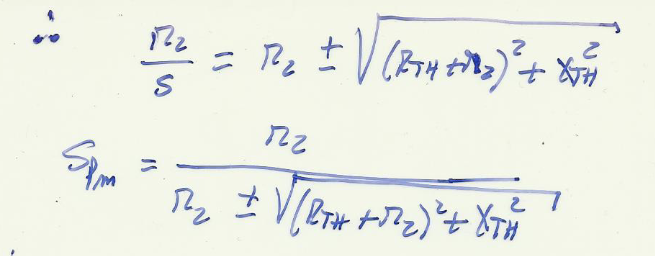 ∴ r₂/s = r₂ ± √((R_TH + r₂)² + X_TH²)
S_Pm = r₂ / (r₂ ± √((R_TH + r₂)² + X_TH²))